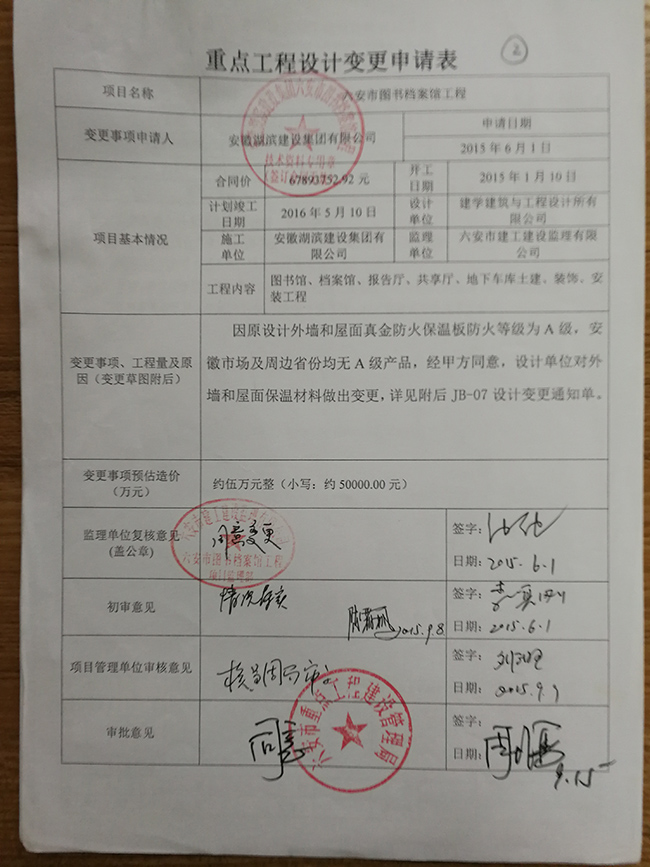 2
重点工程设计变更申请表
项目名称
六安市图书档案馆工程
变更事项申请人
安徽湖滨建设集团有限公司
申请日期
2015年6月1日
技术资料专用章
项目基本情况
合同价
67893752.92元
开工
日期
2015年1月10日
计划竣工
日期
2016年5月10日
设计
单位
建学建筑与工程设计所有
限公司
施工
单位
安徽湖滨建设集团有
限公司
监理
单位
六安市建工建设监理有限
公司
工程内容
图书馆、档案馆、报告厅、共享厅、地下车库土建、装饰、安
装工程
变更事项、工程量及原
因（变更草图附后）
因原设计外墙和屋面真金防火保温板防火等级为A级，安
徽市场及周边省份均无A级产品，经甲方同意，设计单位对外
墙和屋面保温材料做出变更，详见附后JB-07设计变更通知单。
变更事项预估造价
（万元）
约伍万元整（小写：约50000.00元）
监理单位复核意见
(盖公章)
同意变更
六安市图书档案馆工程
项目监理部
签字：
日期：2015.6.1
初审意见
情况属实
2015.9.8
签字：
日期：2015.6.1
项目管理单位审核意见
签字：
日期：2015.9.9
六安市重点工程建设管理局
审批意见
同意
签字：
日期：
9.15